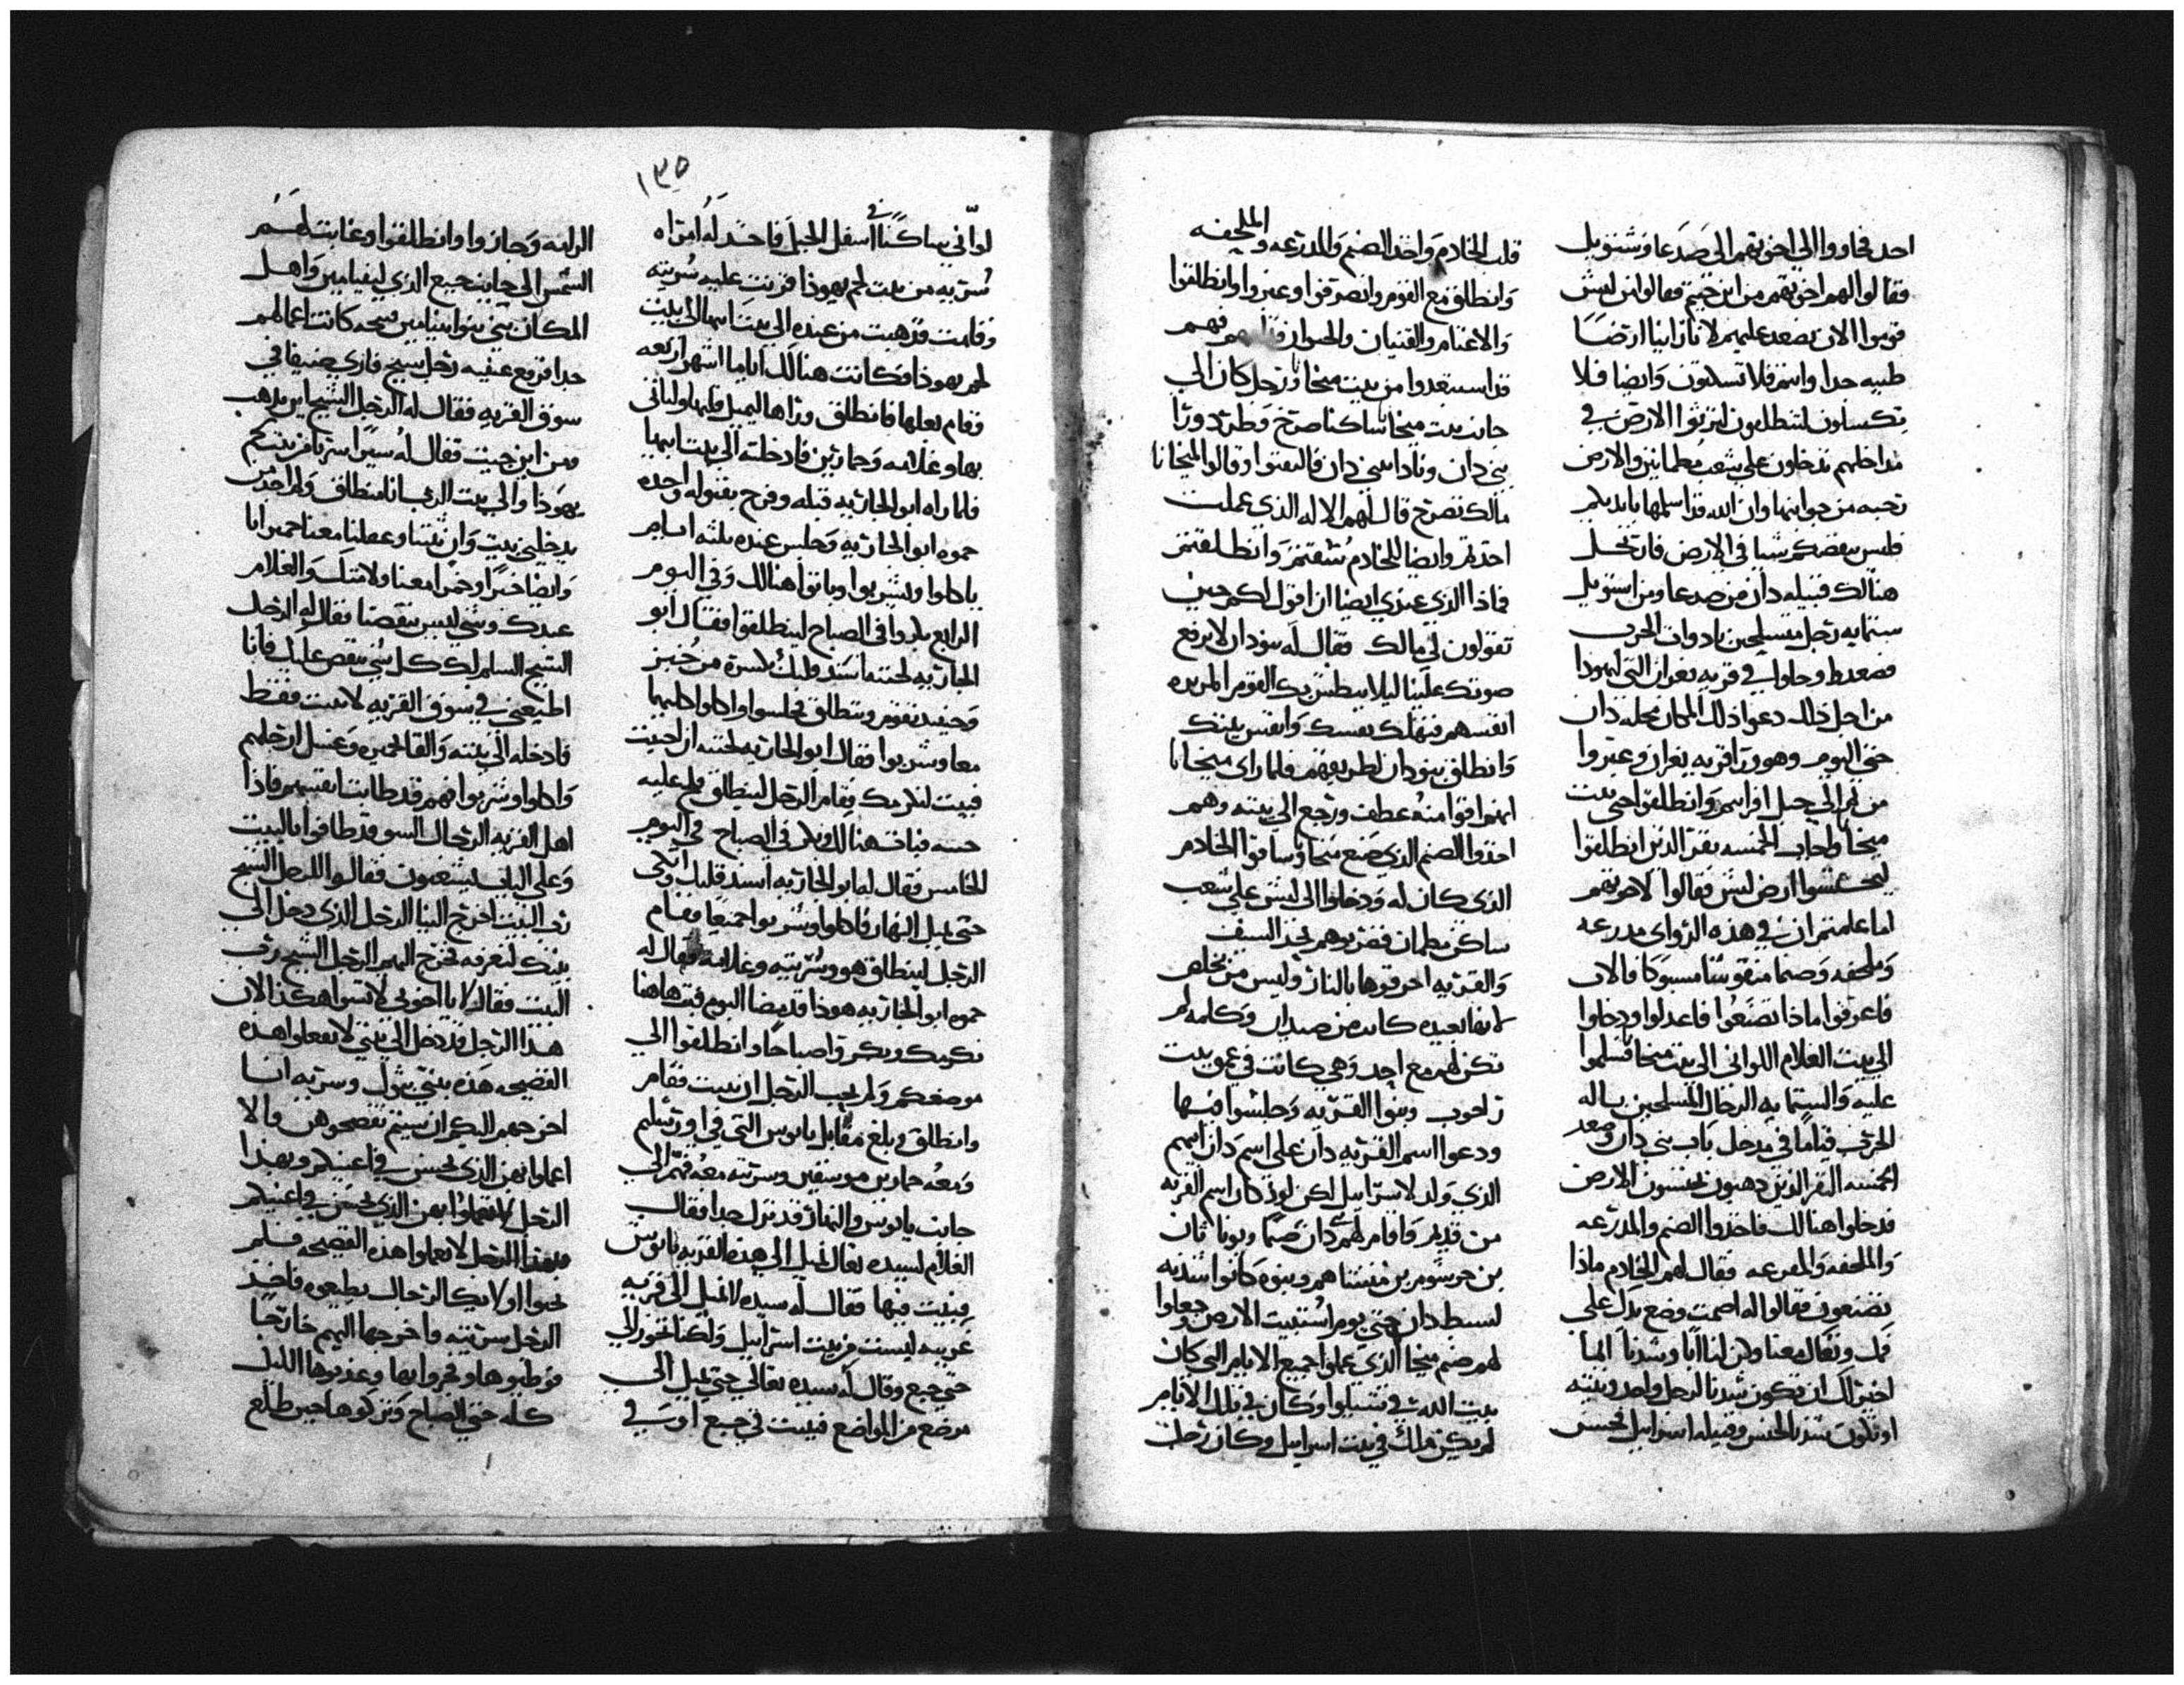 احد فجاووا الى اخوتهم الى صدعا وشتويل
فقالوا لهم اخوتهم من اين جيتم فقالوا من ليش
قوموا الان نصعد عليهم لانا راينا ارضا
طيبه جدا وانتم فلا تسكتون وايضا فلا
تكسلون لتنطلقون لترثوا الارض في
مداخلهم تدخلون على شعب مطمانين والارض
رحبه من جوانبها وان الله قد اسلمها بايديكم
فليس ينقصكم شيا في الارض فارتحل
هنالك قبيله دان من صدعا ومن استويل
ستمايه رجل متسلحين بادوات الحرب
فصعدوا وحلوا في قريه يعران التي ليهودا
من اجل ذلك دعوا ذلك المكان محله دان
حتى اليوم وهو ورا قريه يعران وعبروا
من ثم الى جبل افرايم وانطلقوا حتى بيت
ميخا واجاب الخمسه نفر الذين انطلقوا
ليجسوا ارض ليش فقالوا لاخوتهم
اما علمتم ان في هذه الرواى مدرعه
وملحفه وصنما منقوشا مسبوكا فالان
فاعرفوا ماذا تصنعوا فاعدلوا ودخلوا
الى بيت الغلام اللواني الى بيت ميخا فسلموا
عليه والستمايه الرجال المتسلحين باله
الحرب قياما في مدخل باب بني دان وصعد
الخمسه النفر الذين ذهبون لجسون الارض
فدخلوا هنالك فاخذوا الصنم والمدرعه
والملحفه والمفرعه فقال لهم الخادم ماذا
تصنعون فقالوا له اصمت وضع يدك على
فمك وتعال معنا وكن لنا ابا وشدنا انما
اخير لك ان تكون شدنا لرجل واحد وبيته
او تكون شدنا لجنس وقبيله اسرايل فحسن
قلب الخادم واخذ الصنم والمدرعه والملحفه
وانطلق مع القوم وانصرفوا وعبروا وانطلقوا
والاغنام والقنيان والحيوان قدامهم فهم
قد استبعدوا من بيت ميخا ورجل كان الى
جانب بيت ميخا ساكنا صرخ وطرد ورا
بني دان ونادا لبني دان فالتفتوا وقالوا لميخا انا
مالك تصرخ قال لهم الاله الذي عملت
اخذتم وايضا للخادم سقتم وانطلقتم
فماذا الذي عندي ايضا ان اقول لكم حين
تقولون لي مالك فقال له بنو دان لا يرفع
صوتك علينا ليلا يبطش بك القوم المريره
انفسهم فتهلك نفسك وانفس بيتك
وانطلق بنو دان لطريقهم فلما راى ميخا انا
انهم اقوا منه عطف ورجع الى بيته وهم
اخذوا الصنم الذي صنع ميخا وساقوا الخادم
الذي كان له ودخلوا الى ليش على شعب
ساكن مطمان فضربوهم بحد السيف
والقريه احرقوها بالنار وليس من يخلص
لانها بعيده كانت من صيدان وكلمه لم
تكن لهم مع احد وهي كانت في عمق بيت
راحوب وبنوا القريه وجلسوا فيها
ودعوا اسم القريه دان على اسم دان ابيهم
الذي ولد لاسرايل لكن لوز كان اسم القريه
من قديم واقام لهم دان صنما ويوناثان
بن جرشوم بن منشا هم وبنوه كانوا شدنه
لسبط دان حتى يوم استبيت الارض وجعلوا
لهم صنم ميخا الذي عملوا جميع الايام التي كان
بيت الله في شيلوا وكان في تلك الايام
لم يكن ملك في بيت اسرايل وكان رجل
١٣٥
لواني ساكنا في اسفل الجبل فاخذ له امراه
سريه من بيت لحم يهوذا فزنت عليه سريته
وقامت فذهبت من عنده الى بيت ابيها الى بيت
لحم يهوذا فكانت هنالك اياما اشهر اربعه
وقام بعلها فانطلق وراها ليميل قلبها ولياتي
بها وغلامه وحمارين فادخلته الى بيت ابيها
فلما راه ابو الجاريه قبله وفرح بقبوله واخذه
حموه ابو الجاريه وجلس عنده ثلثه ايام
ياكلوا ويشربوا وباتوا هنالك وفي اليوم
الرابع بكروا في الصباح لينطلقوا فقال ابو
الجاريه لختنه اسند قلبك بكسرة من خبز
وحينيذ تقوم وتنطلق فجلسوا واكلوا كليهما
معا وشربوا فقال ابو الجاريه لختنه ان احببت
فبيت لنكرمك فقام الرجل لينطلق فلح عليه
ختنه فبات هنالك وبكر في الصباح في اليوم
الخامس فقال له ابو الجاريه اسند قلبك واتكي
حتى يميل النهار فاكلوا وشربوا جميعا فقام
الرجل لينطلق هو وسريته وغلامه فقال له
حموه ابو الجاريه هوذا قد مضا اليوم فبت هاهنا
نكرمك وبكروا صباحا وانطلقوا الى
موضعكم ولم يحب الرجل ان يبيت فقام
وانطلق وبلغ مقابل يابوس التي في اورشليم
ومعه حمارين موسقين وسريته معه فهم الى
جانب يابوس والنهار قد نزل جدا فقال
الغلام لسيده تعال لنميل الى هذه القريه يابوس
فنبيت فيها فقال له سيده لا نميل الى قريه
غريبه ليست من بيت اسرايل ولكنا نجوز الى
حتى جبع وقال له سيده تعالى حتى نميل الى
موضع من المواضع فنبيت في جبع او سرى في
الرامه وجازوا وانطلقوا وغابت لهم
الشمس الى جانب جبع الذي لبنيامين واهل
المكان بني بنيامين قبيحه كانت اعمالهم
جدا فرفع عينيه رجل شيخ فاري ضيفا في
سوق القريه فقال له الرجل الشيخ اين يذهب
ومن اين جيت فقال له سيرا سرنا من بيت لحم
يهوذا والى بيت الرب انا منطلق ولم احد من
يدخلني بيت وان تبنا وعملنا معنا حميرانا
وايضا خبزا وخمرا معنا ولامتك والغلام
عبدك وشي ليس ينقصنا فقال له الرجل
الشيخ السلم لك كل شي ينقص عليك فانا
اطيعني في سوق القريه لا تبيت فقط
فادخله الى بيته والقا لحميره وغسل ارجلهم
واكلوا وشربوا فهم قد طابت انفسهم فاذا
اهل القريه الرجال السو قد طافوا بالبيت
وعلى الباب يشغبون فقالوا للرجل الشيخ
رب البيت اخرج الينا الرجل الذي دخل الى
بيتك لنعرفه فخرج اليهم الرجل الشيخ رب
البيت فقال لا يا اخوتي لا تسوا هكذا الان
هذا الرجل قد دخل الى بيتي لا تفعلوا هذه
الفضيحه هذه بنتي بتول وسريه انا
اخرجهم اليكم ان شيتم تفضحوهن والا
اعملوا بهن الذي يحسن في اعينكم وبهذا
الرجل لا تعملوا بهن الذي يحسن في اعينكم
وبهذا الرجل لا تعملوا هذه الفضيحه فلم
يحبوا اوليك الرجال يطيعوه فاخذ
الرجل سريته واخرجها اليهم خارجا
فوطيوها وفجروا بها وعذبوها الليل
كله حتى الصباح وتركوها حين طلع